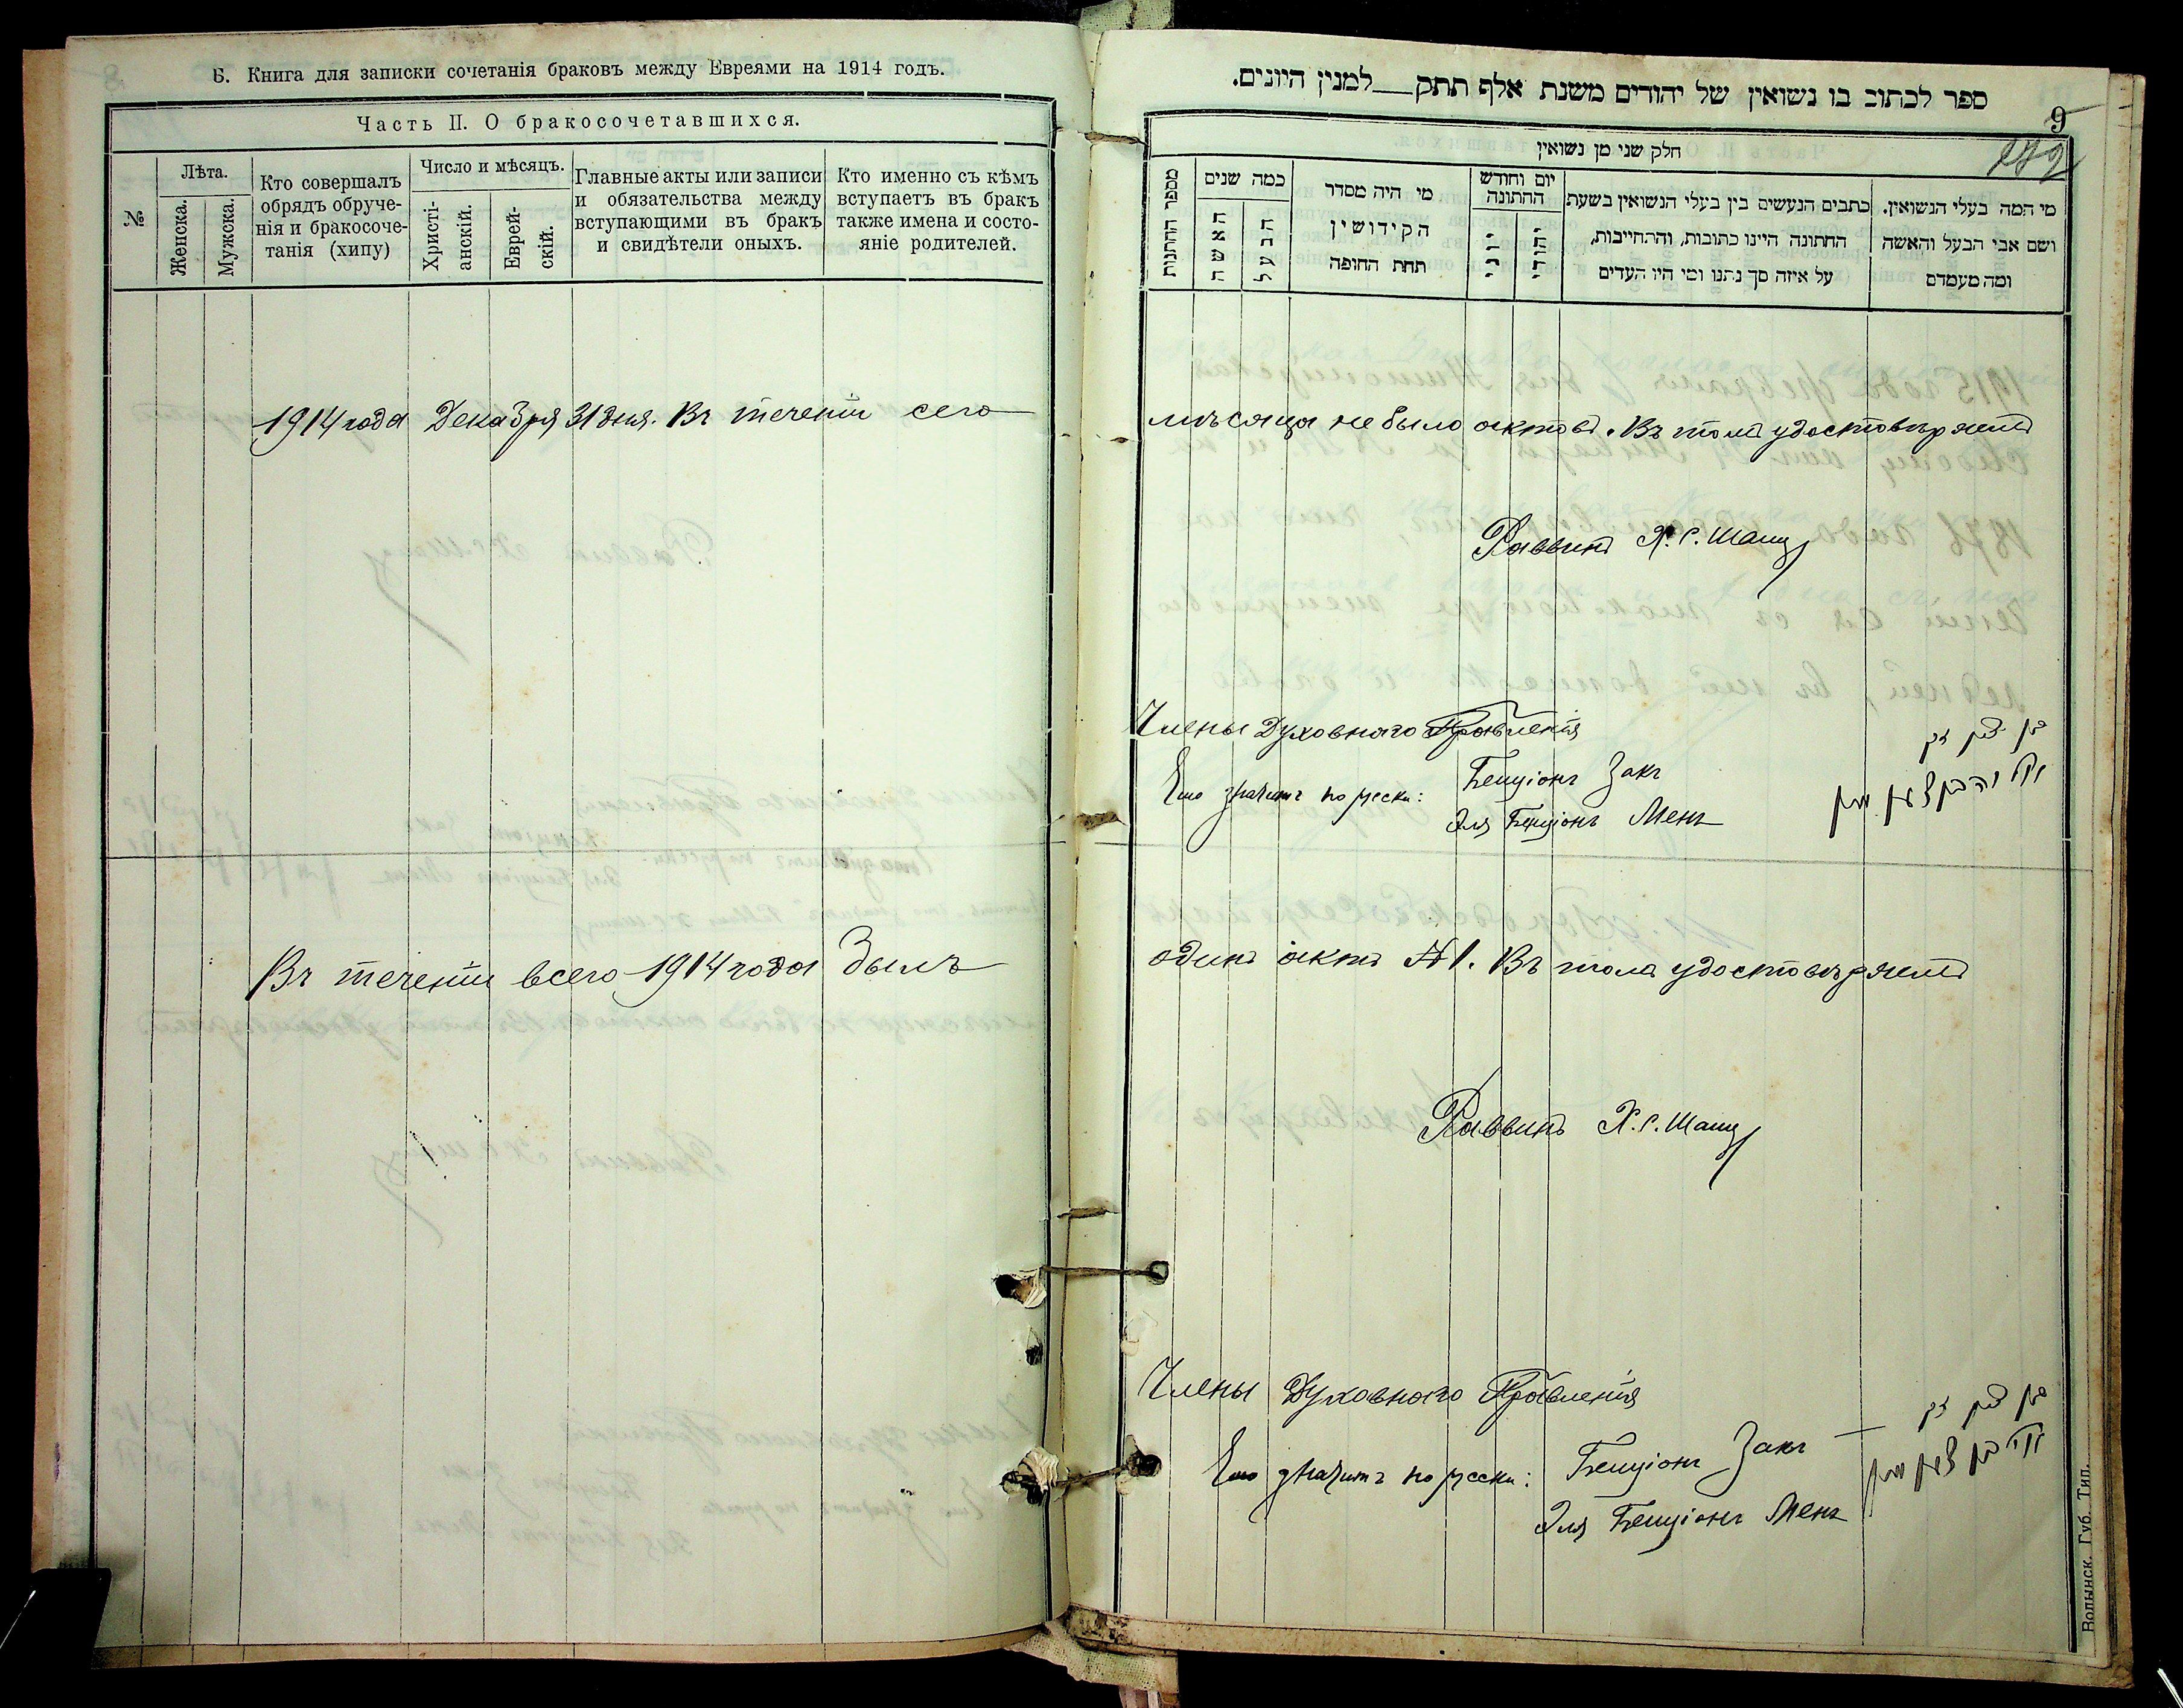 Б. Книга для записки сочетанія браковъ между Евреями на 1914 годъ.
Часть II. О бракосочетавшихся.
№
Лѣта.
Женска.
Мужска.
Кто совершалъ
обрядъ обруче-
нія и бракосоче-
танія (хипу)
Число и мѣсяцъ.
Христі-
анскій.
Еврей-
скій.
Главные акты или записи
и обязательства между
вступающими въ бракъ
и свидѣтели оныхъ.
Кто именно съ кѣмъ
вступаетъ въ бракъ
также имена и состо-
яніе родителей.
1914 года Декабря 31 дня. Въ теченіи сего
Въ теченіи всего 1914 года былъ
ספר לכתוב בו נשואין של יהודים משנת אלף תתק__למנין היונים.
9
חלק שני מן נשואין
מספר החתונות
כמה שנים
האשה
הבעל
מי היה מסדר
הקידושין
תחת החופה
יום וחודש
החתונה
יוני
יהודי
כתבים הנעשים בין בעלי הנשואין בשעת
החתונה היינו כתובות, והתחייבות,
על איזה סך נתנו ומי היו העדים
מי המה בעלי הנשואין.
ושם אבי הבעל והאשה
ומה מעמדם
мѣсяца не было актовъ. Въ томъ удостовѣряемъ
Раввинъ Х. С. Шацъ
Члены Духовнаго Правленія
בן ציון זק
Это значитъ по русски: Бенціонъ Закъ
Эля Бенціонъ Менъ
одинъ актъ №1. Въ томъ удостовѣряемъ
Раввинъ Х. С. Шацъ
Члены Духовнаго Правленія
בן ציון זק
Это значитъ по русски: Бенціонъ Закъ
Эля Бенціонъ Менъ
Волынск. Губ. Тип.